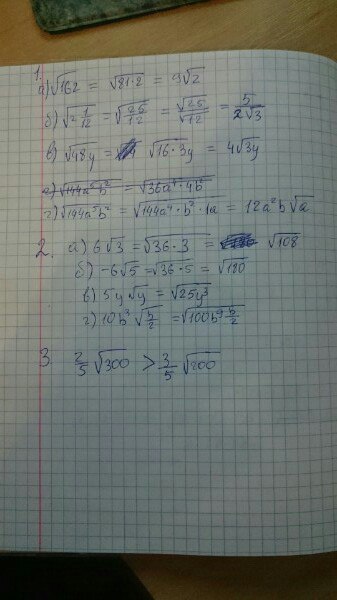 1.
а) √162 = √81·2 = 9√2
б) √2 1/12 = √25/12 = √25/√12 = 5/2√3
в) √48y = √16·3y = 4√3y
г) √144a⁵b² = √36a⁴·4b²
г) √144a⁵b² = √144a⁴·b²·1a = 12a²b√a
2. а) 6√3 = √36·3 = √108
б) -6√5 = √36·5 = √180
в) 5y√y = √25y³
г) 10b³√b/2 = √100b⁹ b/2
3. 2/5 √300 > 3/5 √200